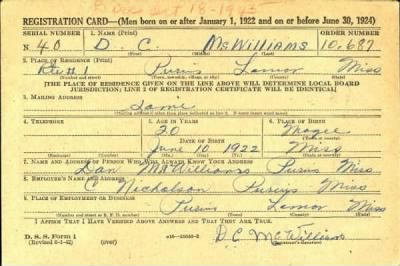 REGISTRATION CARD—(Men born on or after January 1, 1922 and on or before June 30, 1924)
SERIAL NUMBER 1. NAME (Print) ORDER NUMBER
N 40 D. C. McWilliams 10,687
2. PLACE OF RESIDENCE (Print)
Rte #1 Purvis Lamar Miss
(Number and street) (Town, township, village, or city) (County) (State)
[THE PLACE OF RESIDENCE GIVEN ON THE LINE ABOVE WILL DETERMINE LOCAL BOARD
JURISDICTION; LINE 2 OF REGISTRATION CERTIFICATE WILL BE IDENTICAL]
3. MAILING ADDRESS
Same
4. TELEPHONE 5. AGE IN YEARS 6. PLACE OF BIRTH
20 Magee
DATE OF BIRTH
June 10 1922 Miss
7. NAME AND ADDRESS OF PERSON WHO WILL ALWAYS KNOW YOUR ADDRESS
Dan McWilliams Purvis Miss
8. EMPLOYER'S NAME AND ADDRESS
C Nicholson Purvis Miss
9. PLACE OF EMPLOYMENT OR BUSINESS
Purvis Lamar Miss
(Number and street or R. F. D. number) (Town) (County) (State)
I AFFIRM THAT I HAVE VERIFIED ABOVE ANSWERS AND THAT THEY ARE TRUE.
D. S. S. Form 1
(Revised 6-1-42) (over)
D. C. McWilliams
(Registrant's signature)